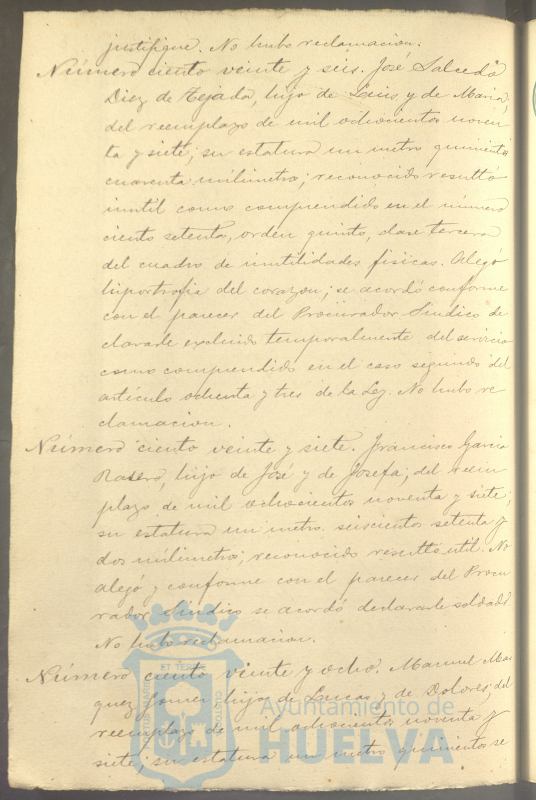 justifique. No hubo reclamacion.
Número ciento veinte y seis. José Salcedo
Diez de Tejada, hijo de Luis y de Maria,
del reemplazo de mil ochocientos noven
ta y siete; su estatura un metro quinientos
cuarenta milimetros; reconocido resultó
inutil como comprendido en el número
ciento setenta, orden quinto, clase tercera
del cuadro de inutilidades fisicas. Alegó
hiportrofia del corazon; se acordó conforme
con el parecer del Procurador Sindico de
clararle excluido temporalmente del servicio
como comprendido en el caso segundo del
articulo ochenta y tres de la Ley. No hubo re
clamacion.
Número ciento veinte y siete. Francisco Garcia
Rasero, hijo de José y de Josefa; del reem
plazo de mil ochocientos noventa y siete;
su estatura un metro seiscientos setenta y
dos milimetros; reconocido resultó util. No
alegó y conforme con el parecer del Procu
rador Sindico se acordó declararle soldado
No hubo reclamacion.
Número ciento veinte y ocho. Manuel Mar
quez hijo de Lucas y de Dolores; del
reemplazo de mil ochocientos noventa y
siete; su estatura un metro quinientos se
ET TERRÆ
Ayuntamiento de
HUELVA